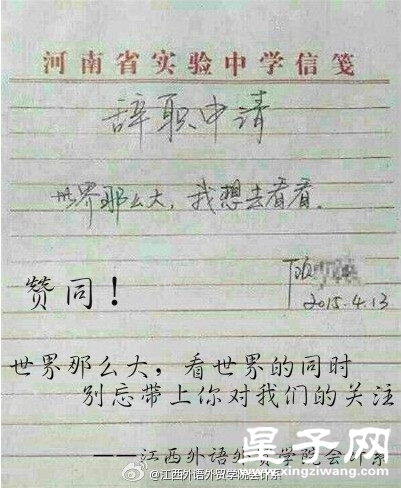 河南省实验中学信笺
辞职申请
世界那么大,我想去看看。
顾
2015.4.13
赞同!
世界那么大,看世界的同时
别忘带上你对我们的关注
——江西外语外贸学院会计系
@江西外语外贸学院会计系
星子网
www.xingziwang.com